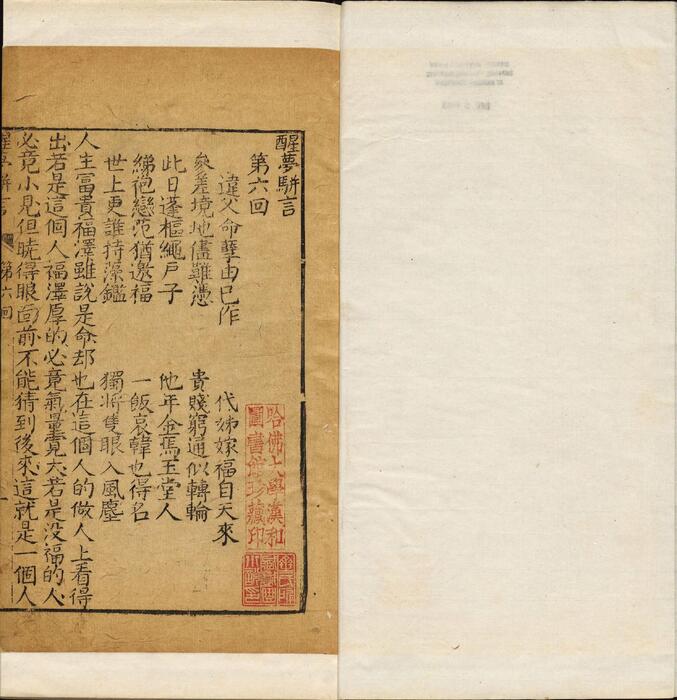 醒夢駢言
第六回
違父命孽由已作　代姊嫁福自天來
參差境地儘難憑　貴賤窮通似轉輪
此日蓬樞繩戶子　他年金馬玉堂人
綈袍戀范猶邀福　一飯哀韓也得名
世上更誰持藻鑑　獨將雙眼入風塵
人生富貴福澤雖說是命却也在這個人的做人上看得
出若是這個人福澤厚的必竟氣量寬大若是没福的人
必竟小見但曉得眼面前不能猜到後來這就是一個人
醒夢駢言　第六回　一
哈佛大學漢和
圖書館珍藏印